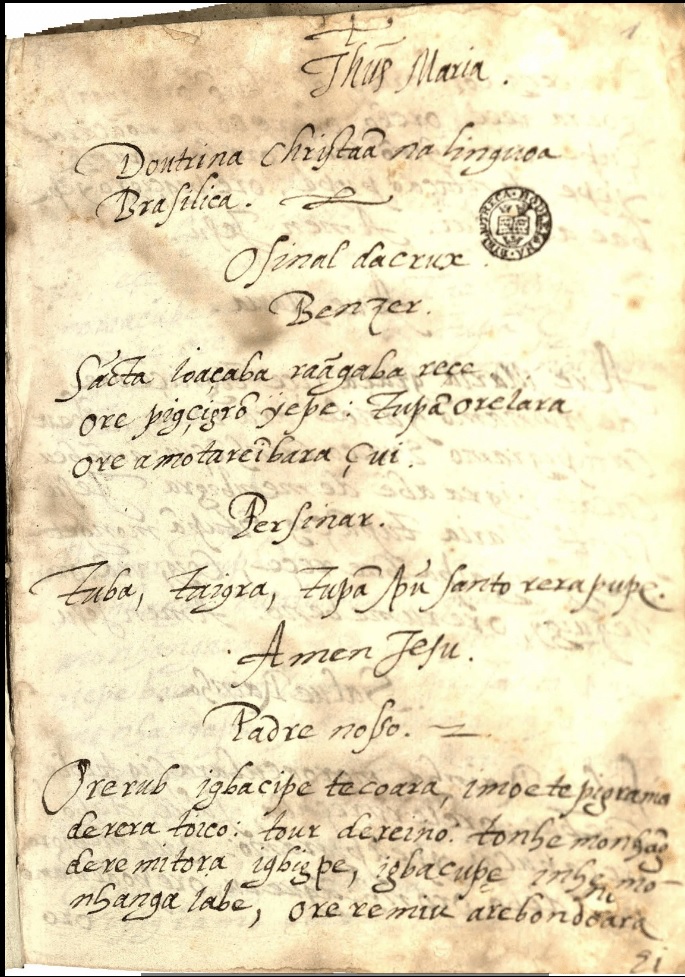 1
Jhũs Maria.
Doutrina Christaã na linguoa
Brasilica.
O sinal da crux
Benzer.
Sãcta ioaçaba raãgaba rece
ore pigçigrõ yepe: Tupã orelara
ore amotareĩbara çui.
Persinar.
Tuba, taigra, Tupã Spũ santo rera pupe.
Amen Jesu.
Padre nosso.
Orerub igbacipe tecoara, imoete pigramo
derera toico: tour dereino: tonhe monhãg
deremitora igbigpe, igbacupe inhe mo-
nhanga iabe, ore remiu arebondoara